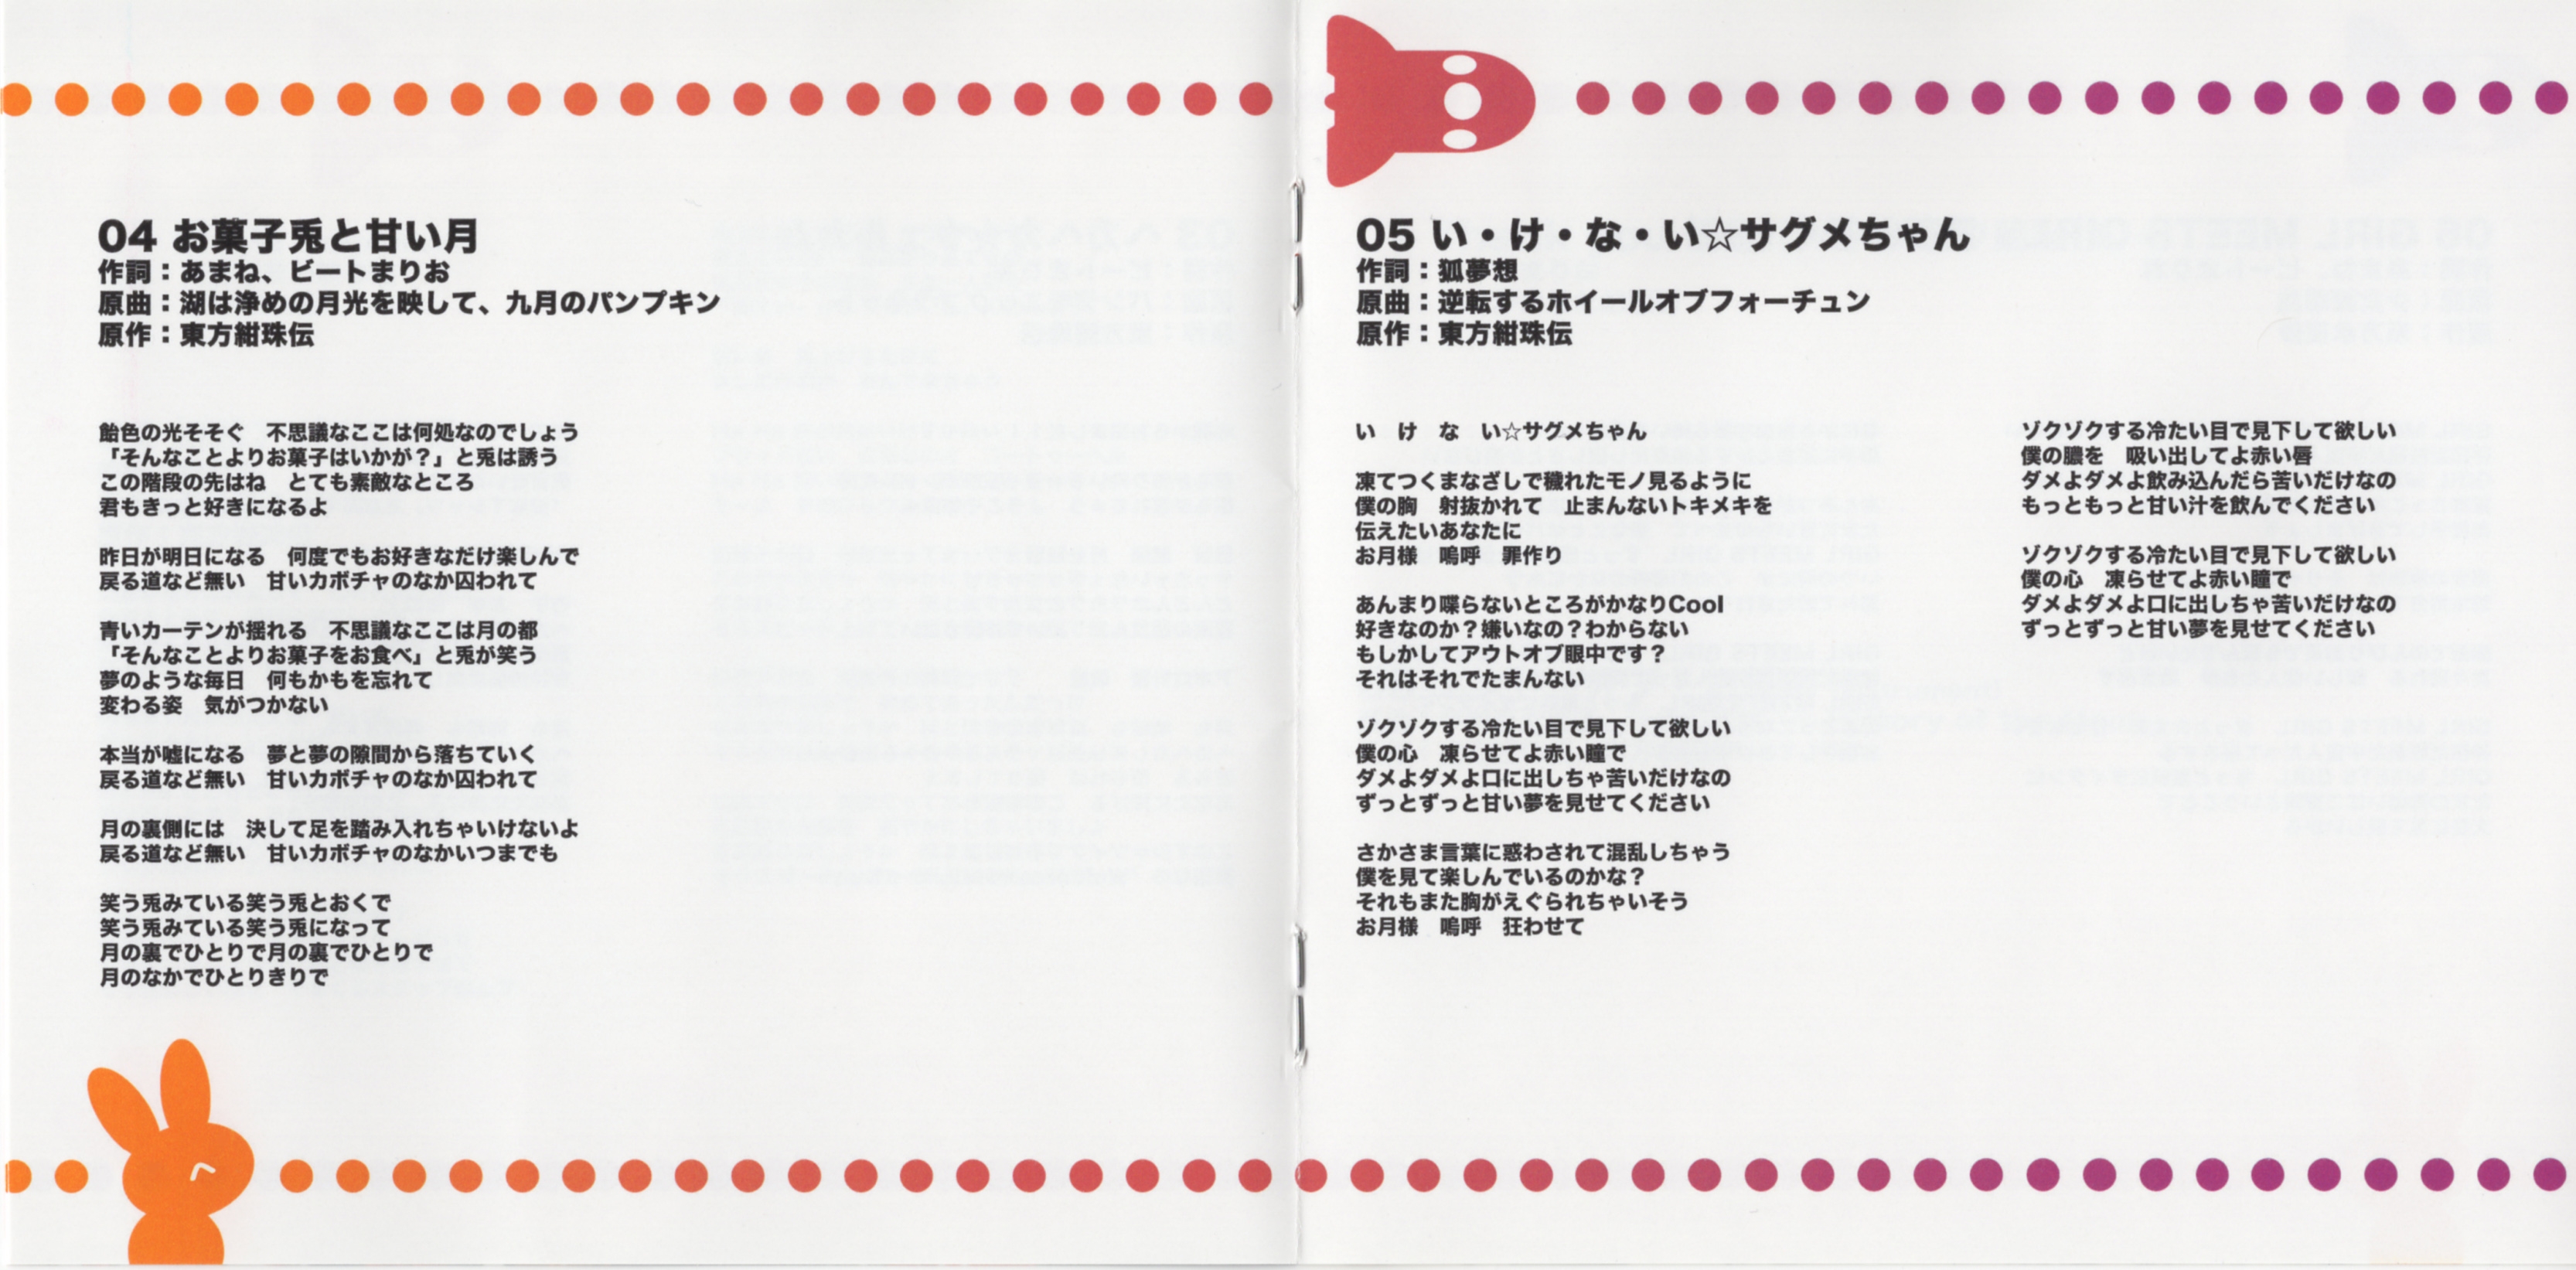 04 お菓子兎と甘い月
作詞：あまね、ビートまりお
原曲：湖は浄めの月光を映して、九月のパンプキン
原作：東方紺珠伝
飴色の光そそぐ　不思議なここは何処なのでしょう
「そんなことよりお菓子はいかが？」と兎は誘う
この階段の先はね　とても素敵なところ
君もきっと好きになるよ
昨日が明日になる　何度でもお好きなだけ楽しんで
戻る道など無い　甘いカボチャのなか囚われて
青いカーテンが揺れる　不思議なここは月の都
「そんなことよりお菓子をお食べ」と兎が笑う
夢のような毎日　何もかもを忘れて
変わる姿　気がつかない
本当が嘘になる　夢と夢の隙間から落ちていく
戻る道など無い　甘いカボチャのなか囚われて
月の裏側には　決して足を踏み入れちゃいけないよ
戻る道など無い　甘いカボチャのなかいつまでも
笑う兎みている笑う兎とおくで
笑う兎みている笑う兎になって
月の裏でひとりで月の裏でひとりで
月のなかでひとりきりで
05 い・け・な・い☆サグメちゃん
作詞：狐夢想
原曲：逆転するホイールオブフォーチュン
原作：東方紺珠伝
い　け　な　い☆サグメちゃん
凍てつくまなざしで穢れたモノ見るように
僕の胸　射抜かれて　止まんないトキメキを
伝えたいあなたに
お月様　嗚呼　罪作り
あんまり喋らないところがかなりCool
好きなのか？嫌いなの？わからない
もしかしてアウトオブ眼中です？
それはそれでたまんない
ゾクゾクする冷たい目で見下して欲しい
僕の心　凍らせてよ赤い瞳で
ダメよダメよ口に出しちゃ苦いだけなの
ずっとずっと甘い夢を見せてください
さかさま言葉に惑わされて混乱しちゃう
僕を見て楽しんでいるのかな？
それもまた胸がえぐられちゃいそう
お月様　嗚呼　狂わせて
ゾクゾクする冷たい目で見下して欲しい
僕の膿を　吸い出してよ赤い唇
ダメよダメよ飲み込んだら苦いだけなの
もっともっと甘い汁を飲んでください
ゾクゾクする冷たい目で見下して欲しい
僕の心　凍らせてよ赤い瞳で
ダメよダメよ口に出しちゃ苦いだけなの
ずっとずっと甘い夢を見せてください